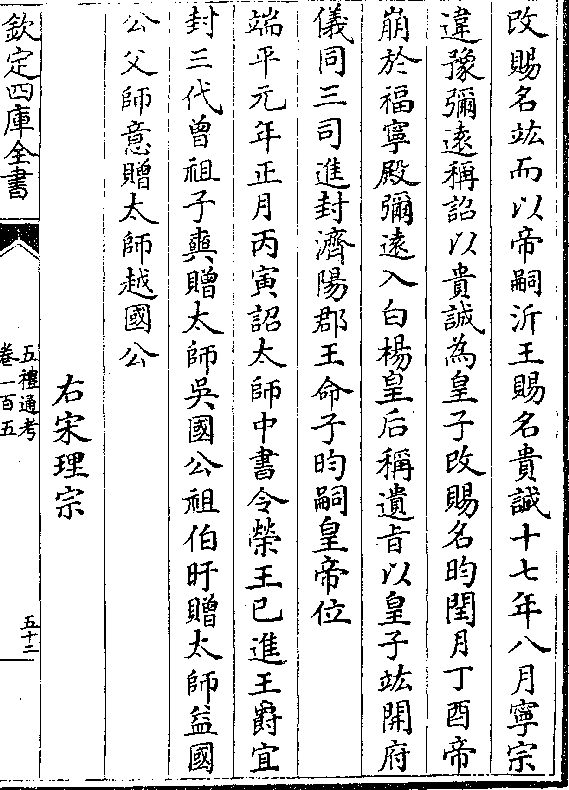 改賜名竑而以帝嗣沂王賜名貴誠十七年八月寧宗
違豫彌遠稱詔以貴誠為皇子改賜名昀閏月丁酉帝
崩於福寧殿彌遠入白楊皇后稱遺旨以皇子竑開府
儀同三司進封濟陽郡王命子昀嗣皇帝位
端平元年正月丙寅詔太師中書令榮王已進王爵宜
封三代曾祖子奭贈太師吳國公祖伯旴贈太師益國
公父師意贈太師越國公
右宋理宗
欽定四庫全書
五禮通考
卷一百五
五十二